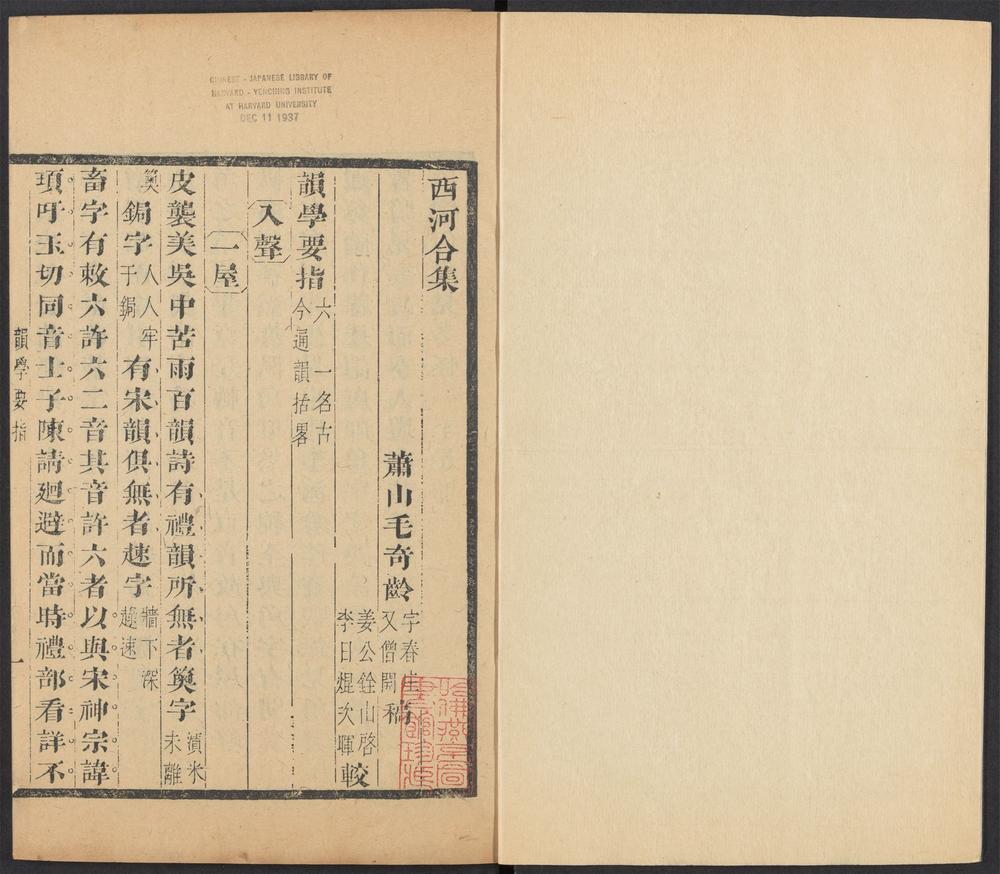 CHINESE - JAPANESE LIBRARY OF
HARVARD - YENCHING INSTITUTE
AT HARVARD UNIVERSITY
DEC 11 1937
西河合集
蕭山毛奇齡字春又僧開稿
姜公銓山啓李日焜次暉較
韻學要指六一名古今通韻括畧
入聲
一屋
皮襲美吳中苦雨百韻詩有禮韻所無者䉛字漬米未離
䉛鋦字人人牢于鋦有宋韻俱無者趚字牆下深趢速
畜字有敕六許六二音其音許六者以與宋神宗諱
頊吁玉切同音士子陳請廻避而當時禮部看詳不
韻學要指
一